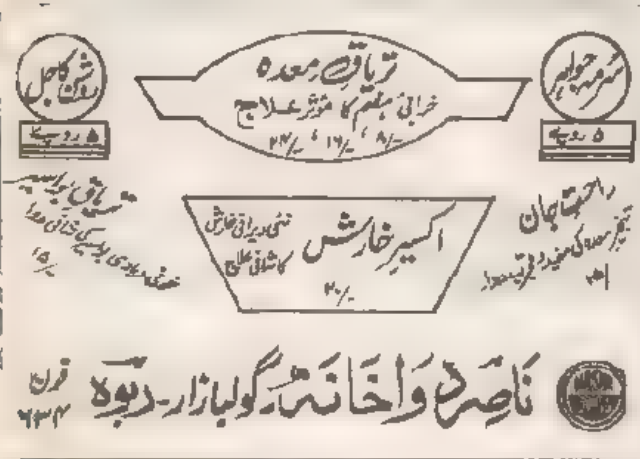 سرمہ جواہر
۵ روپے
تریاقِ معدہ
خرابیٔ ہضم کا مؤثر علاج
۸/- ، ۱۶/- ، ۲۴/-
روشن کاجل
۵ روپے
راحت جان
تبخیر معدہ کی مفید و مجرب دوا
اکسیرِ خارش
نئی و پرانی خارش
کا شافی علاج
۲۰/-
تریاق بواسیر
خونی و بادی بواسیر کی دوا
۱۵/-
ناصر دواخانہ۔ گولبازار۔ ربوہ
فون
۶۳۴